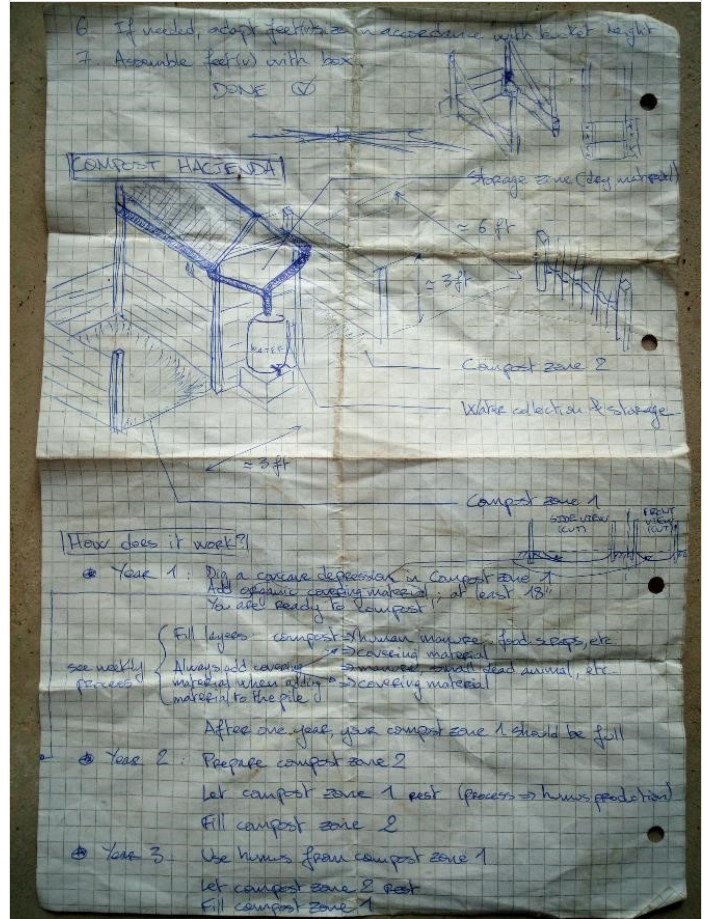 6. If needed, adapt feet size in accordance with bucket height
7. Assemble feet(v) with box.
DONE
COMPOST HACIENDA
Storage zone (dry material)
≈ 6 ft
≈ 3 ft
WATER
Compost zone 2
Water collection & storage
≈ 3 ft
Compost zone 1
SIDE VIEW (CUT)
FRONT VIEW (CUT)
How does it work?
Year 1: Dig a concave depression in Compost zone 1
Add organic covering material; at least 18"
You are ready to compost!
see weekly process
Fill layers compost => human manure, food scraps, etc
=> covering material
Always add covering => manure, small dead animal, etc
material when adding => covering material
material to the pile
After one year, your compost zone 1 should be full
Year 2: Prepare compost zone 2
Let compost zone 1 rest (process => humus production)
Fill compost zone 2
Year 3: Use humus from compost zone 1
Let compost zone 2 rest
Fill compost zone 1